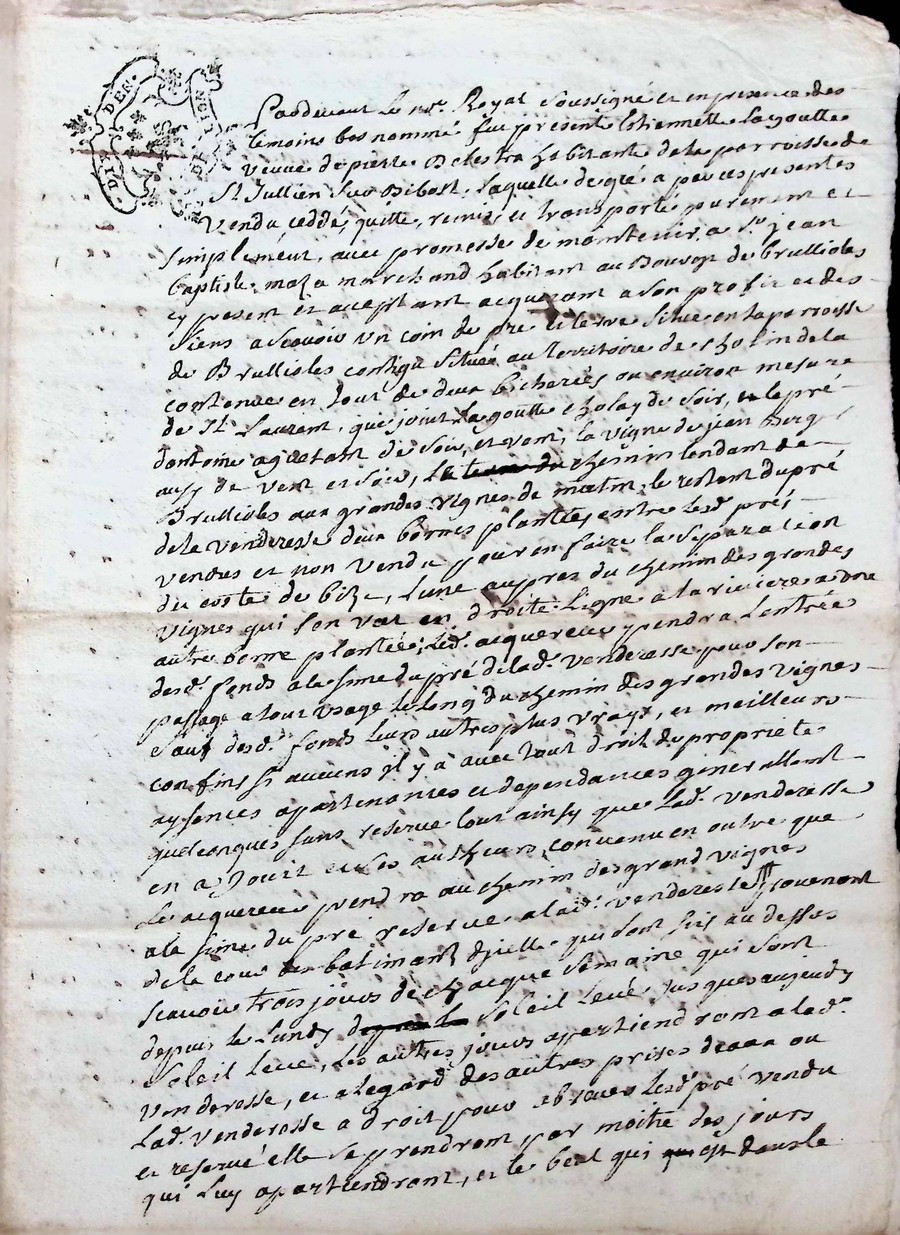 DIX DEN.
DE LION
Pardevant Le nre. Royal soussigné et en presence des
temoins bas nommé fut presente Etiennette Lagoutte
veuve de pierre Balestra habitante de la parroisse de
St. Jullien sur Bibost, laquelle de gré a par ces presentes
Vendu, ceddé, quitte, remis, et transporte purement et
simplement, avec promesse de maintenir, a sr. jean
baptiste maza marchand habitant au Bourg de brullioles
cy present et aceptant acquerant a son profit et des
siens a scavoir un coin de pré et terre situé en la parroisse
de Brullioles contigu située au territoire de cholin de la
contenue en tout de deux bicherées ou environ mesure
de St. Laurent, que joint La goutte cholay de soir, et le pré
dantoine agactant de soir, et vent, la vigne de jean Berg
ausy de vent et soir, le chemin tendant de
Brullioles aux grandes vignes de matin, le restant du pré
de la venderesse deux bornes plantées entre lesd. prés
vendus et non vendu pour en faire la separation
du costé de bize, l'une aupres du chemin des grandes
vignes qui s'en vat en droite ligne a la riviere a une
autre borne plantée; led. acquereur prendra l'entrée
desd. fonds a la sime du pré de lad. venderesse pour son
passage a tout usage le long du chemin des grandes vignes
sauf desd. fonds leurs autres plus vrays, et meilleurs
confins si aucuns il y a avec tout droit de proprieté
aysences apartenances et dependances generallement
quelconques sans reserve tout ainsy que lad. venderesse
en a jouit et ses autheurs, convenu en outre que
le acquereur prendra au chemin des grand vignes
a la sime du pré reservé a lad. venderesse provenant
de la cour batimant d'icelle qui sont sis au dessus
scavoir trois jours de chacque semaine qui sont
depuis le Lundy soleil levé jusques au jeudy
soleil levé, les autres jours apartiendront a lad.
venderesse, et a legard des autres prises deaux ou
lad. venderesse a droit pour abreuer lesd. pré vendu
et reservé elle se prendront par moitié des jours
qui luy apartiendront, et le beal qui est dans le